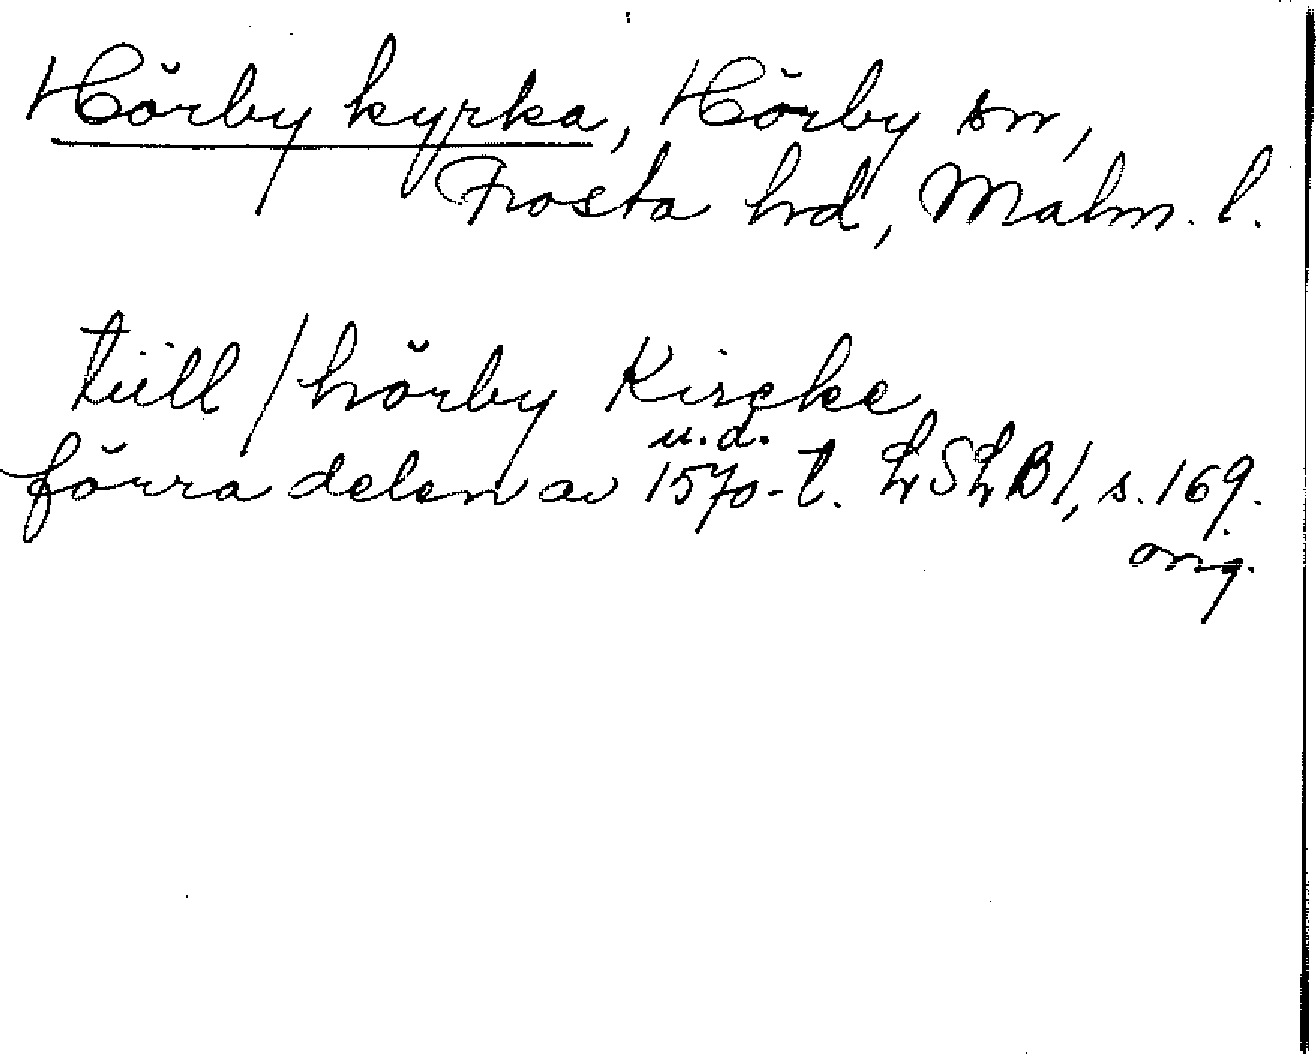 Hörby kyrka, Hörby sn,
Frosta hd, Malm. l.
tiill / hörby Kircke
u.d.
förra delen av 1570-t. LSLB 1, s. 169.
orig.